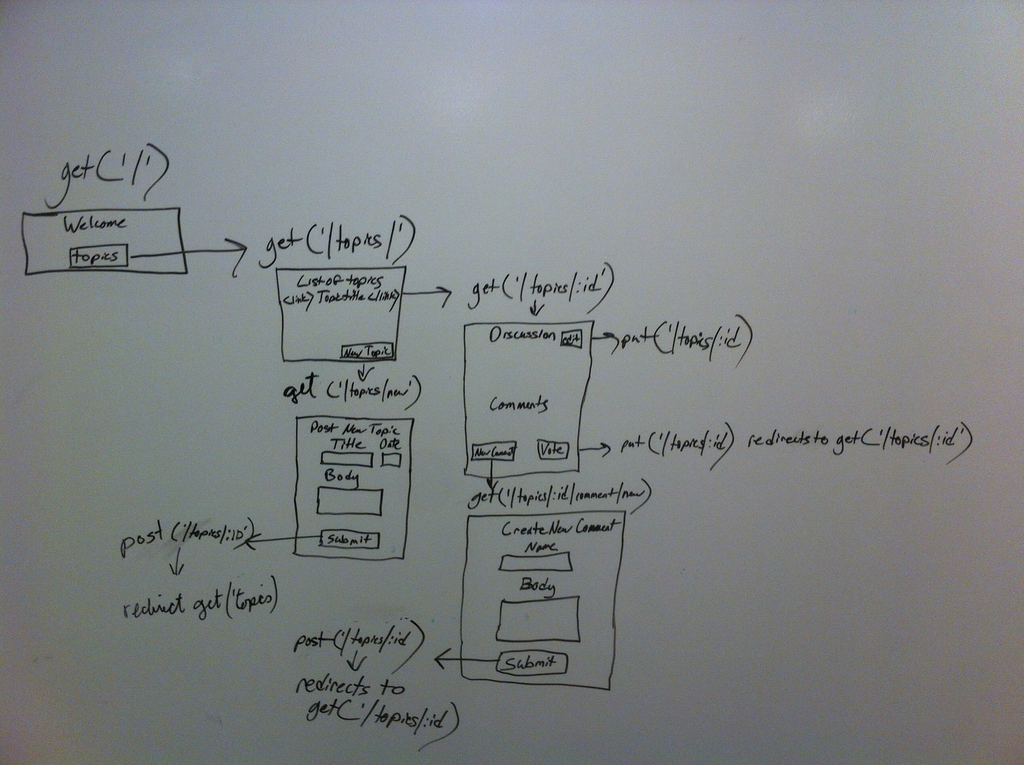 get('/')
Welcome
topics
get('/topics/')
List of topics
<link> Topic title </link>
New Topic
get('/topics/new')
Post New Topic
Title Date
Body
submit
post('/topics/:ID')
redirect get('topics)
get('/topics/:id')
Discussion edit
put('/topics/:id)
Comments
New Comment Vote
put('/topics/:id) redirects to get('/topics/:id')
get('/topics/:id/comment/new)
Create New Comment
Name
Body
Submit
post('/topics/:id)
redirects to
get('/topics/:id)